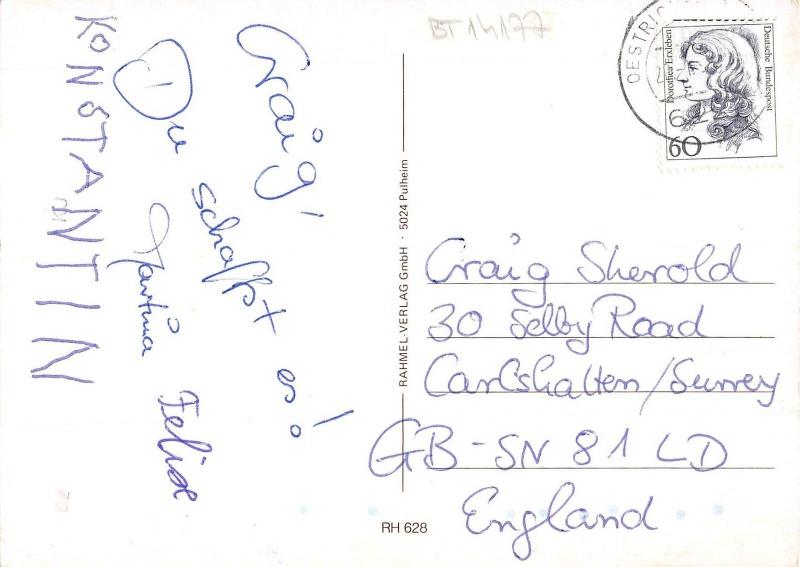 BT 14177
Craig,
Du schaffst es!
Martina
Felix
KONSTANTIN
RAHMEL-VERLAG GmbH · 5024 Pulheim
RH 628
OESTRIC
62
Dorothea Erxleben
Deutsche Bundespost
60
Craig Sherold
30 Selby Road
Carlshalten/Surrey
GB-SN 81 LD
England